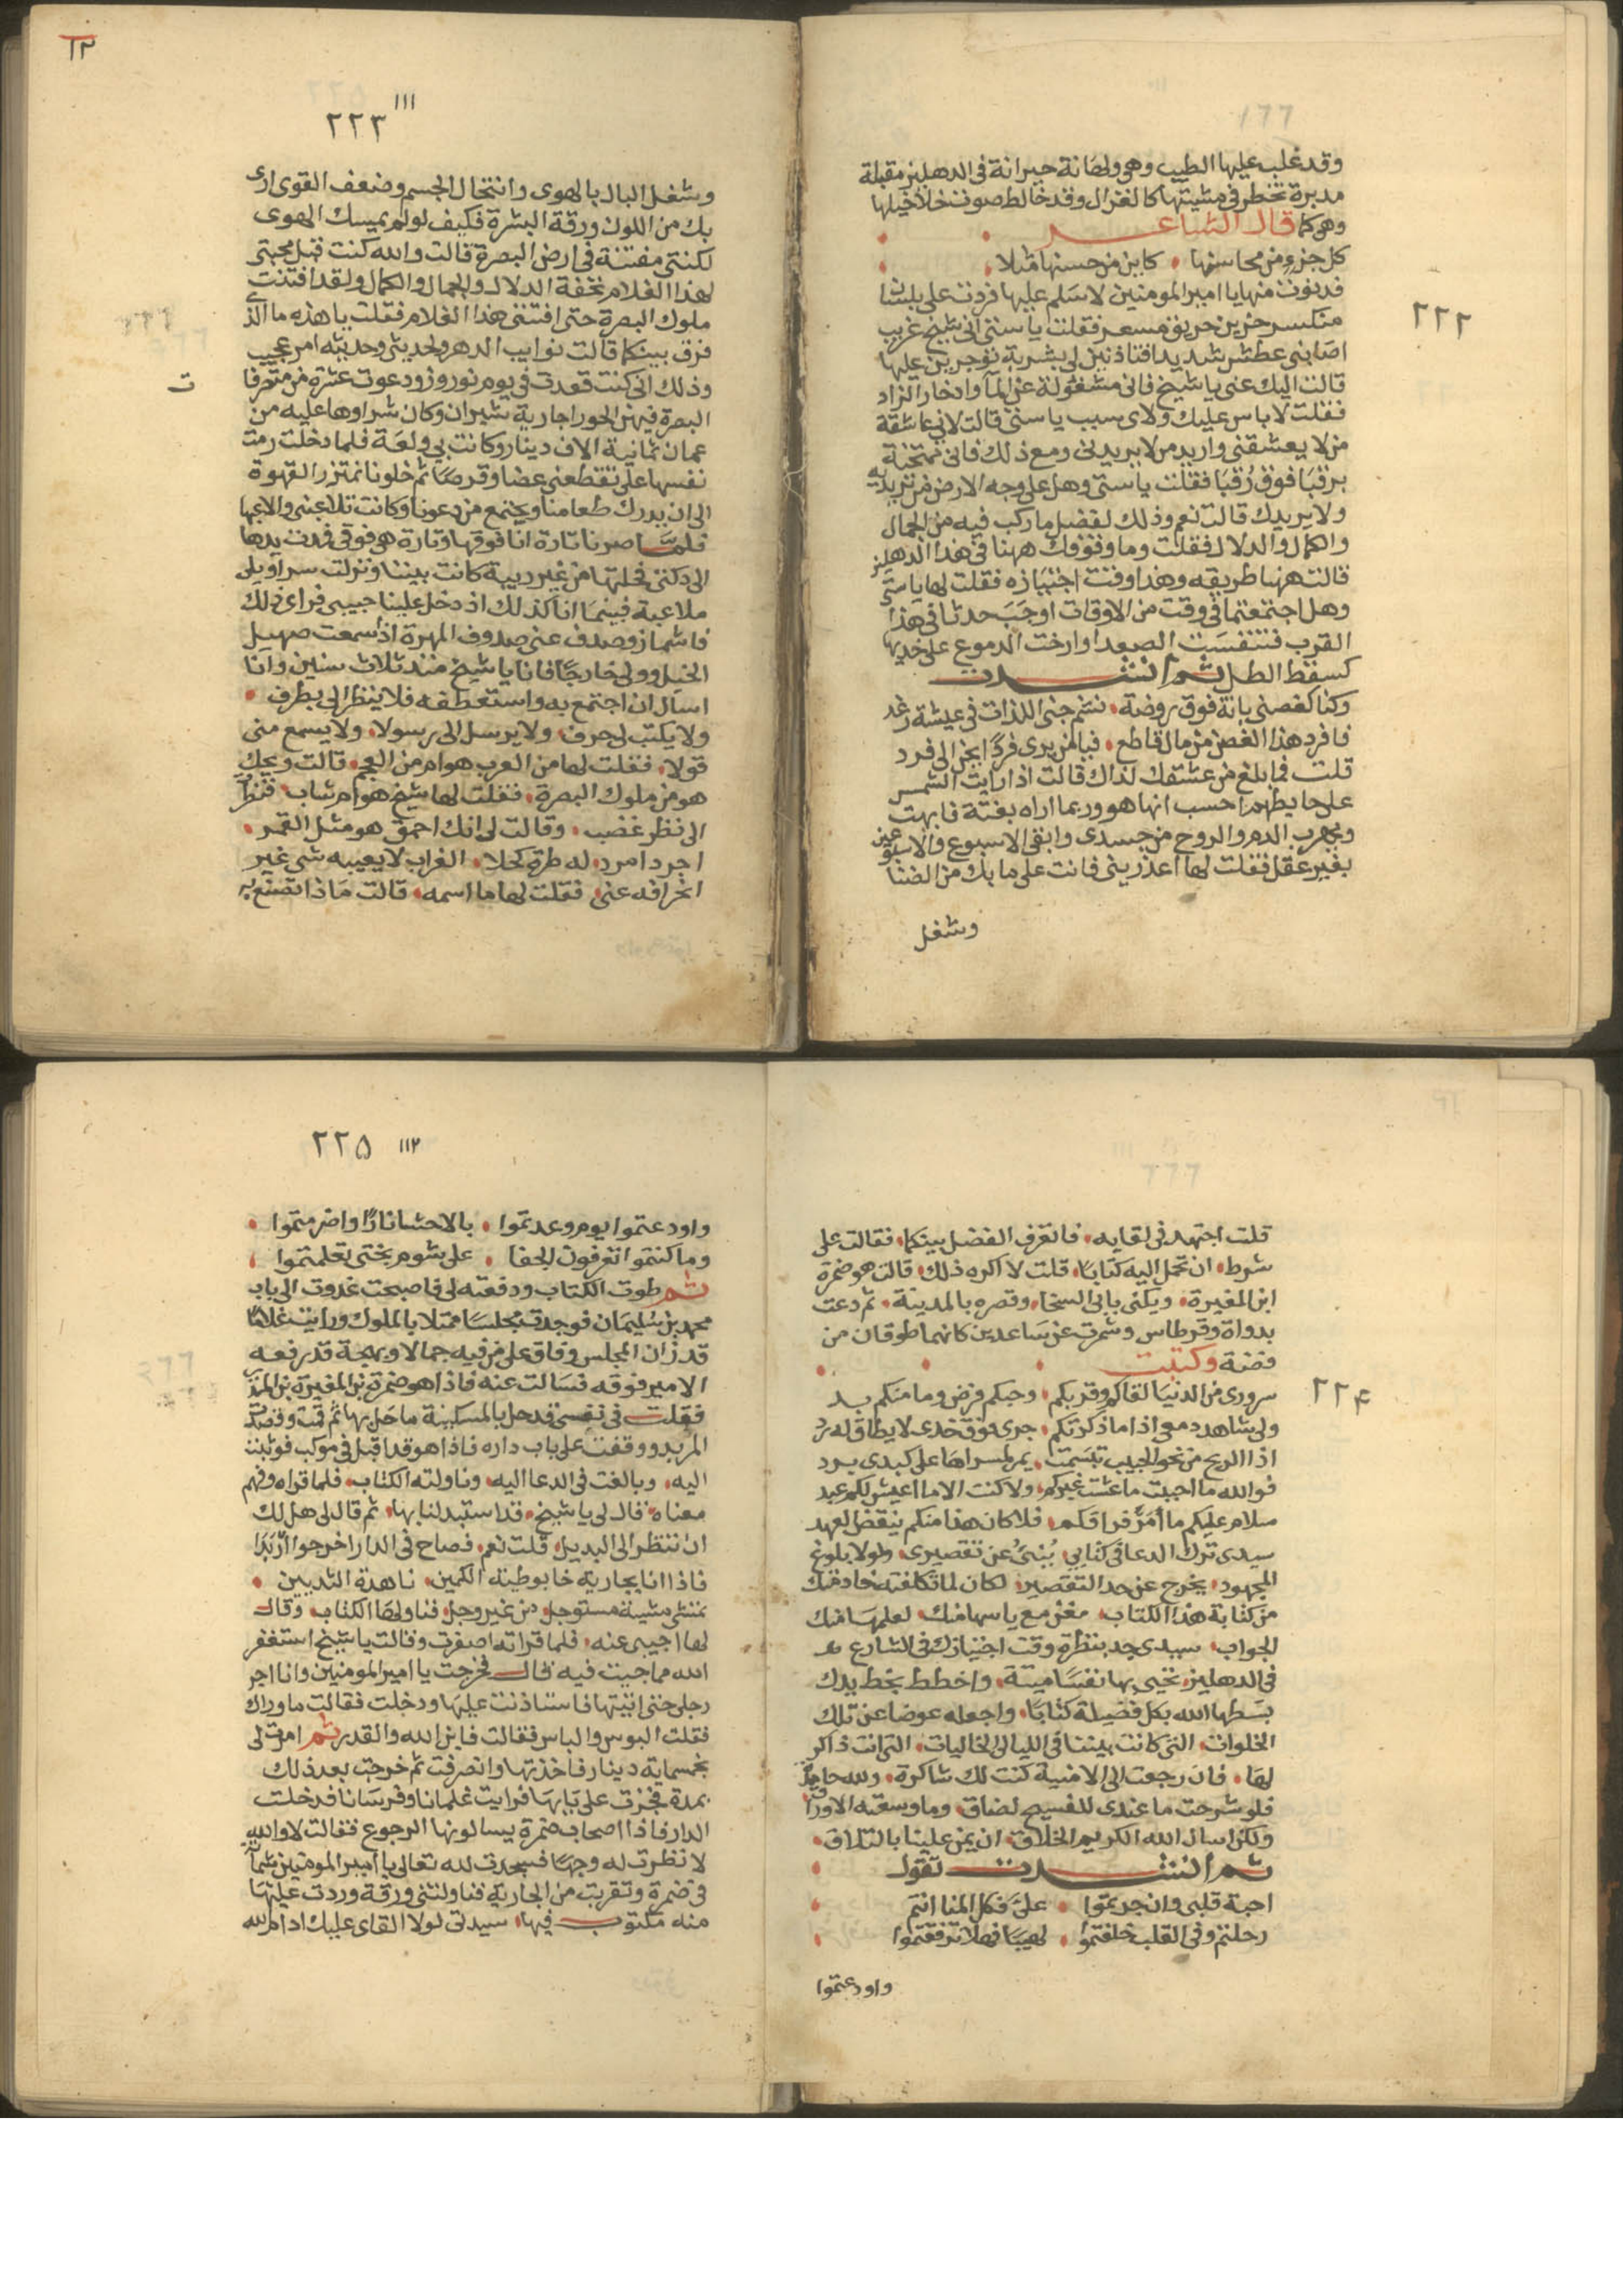 وقد غلب عليها الطيب وهي ولهانة حيرانة في الدهليز مقبلة
مدبرة تخطر في مشيتها كالغزال وقد خالط صوت خلاخيلها
وهي كما قال الشاعر
كل جزء من محاسنها كاين من حسنها مثلا
فدنوت منها يا امير المومنين لاسلم عليها فردت علي بلسان
منكسر حزين حريق مسعر فقلت يا ستي اني شيخ غريب
اصابني عطش شديد افتاذنين لي بشربة توجرين عليها
قالت اليك عني يا شيخ فاني مشغولة عن المآ وادخار الزاد
فقلت لا باس عليك ولاي سبب يا ستي قالت لاني عاشقة
من لا يعشقني واريد من لا يريدني ومع ذلك فاني ممتحنة
برقبا فوق رقبا فقلت يا ستي وهل على وجه الارض من تريديه
ولا يريدك قالت نعم وذلك لفضل ما ركب فيه من الجمال
والكمال والدلال فقلت وما وقوفك ههنا في هذا الدهليز
قالت ههنا طريقه وهذا وقت اجتيازه فقلت لها يا ستي
وهل اجتمعتما في وقت من الاوقات اوجب حدثا في هذا
القرب فتنفست الصعدا وارخت الدموع على خديها
كسقط الطل ثم انشدت
وكنا كغصني بانة فوق روضة نشم جنى اللذات في عيشة رغد
فافرد هذا الغصن من مال قاطع فيا من يرى فردا يحن الى فرد
قلت فما بلغ من عشقك لذاك قالت اذا رايت الشمس
على حايطهم احسب انها هو وربما اراه بغتة فابهت
ويهرب الدم والروح من جسدي وابقى الاسبوع والاسبوعين
بغير عقل فقلت لها اعذريني فانت على ما بك من الضنا
وشغل
٢٢٢
١٢
١١١
٢٢٣
وشغل البال بالهوى وانتحال الجسم وضعف القوى ارى
بك من اللون ورقة البشرة فكيف لو لم يمسك الهوى
لكنتي مفتنة في ارض البصرة قالت والله كنت قبل محبتي
لهذا الغلام تحفة الدلال والجمال والكمال ولقد افتنت
ملوك البصرة حتى افتنني هذا الغلام فقلت يا هذه ما الذي
فرق بينكما قالت نوايب الدهر ولحديثي وحديثه امر عجيب
وذلك اني كنت قعدت في يوم نوروز ودعوت عشرة من متعرفا
ت
البصرة فيهن الحورا جارية شيران وكان شراوها عليه من
عمان ثمانية الاف دينار وكانت بي ولعة فلما دخلت رمت
نفسها علي تقطعني عضا وقرصا ثم خلونا نمتزر القهوة
الى ان يدرك طعامنا ويجتمع من دعونا وكانت تلاعبني والاعبها
فلما صرنا تارة انا فوقها وتارة هي فوقي فمدت يدها
الى دكتي فحلتها من غير ريبة كانت بيننا ونزلت سراويلي
ملاعبة فبينما انا كذلك اذ دخل علينا حبيبي فراى ذلك
فاشماز وصدف عني صدوف المهرة اذا سمعت صهيل
الخيل وولى خارجا فانا يا شيخ منذ ثلاث سنين وانا
اسال ان اجتمع به واستعطفه فلا ينظر الي بطرف
ولا يكتب لي حرف ولا يرسل الي رسولا ولا يسمع مني
قولا فقلت لها من العرب هو ام من العجم قالت ويحك
هو من ملوك البصرة فقلت لها شيخ هو ام شاب فنظرت
الي نظر غضب وقالت لي انك احمق هو مثل القمر
اجرد امرد له طرة كحلا الغراب لا يعيبه شي غير
انحرافه عني فقلت لها ما اسمه قالت ماذا تصنع به
قلت اجتهد في لقايه فاتعرف الفضل بينكما فقالت على
شرط ان تحمل اليه كتابا قلت لا اكره ذلك قالت هو ضمرة
ابن المغيرة ويكنى بابي السخا وقصره بالمدينة ثم دعت
بدواة وقرطاس وشمرت عن ساعدين كانهما طوقان من
فضة وكتبت
سروري من الدنيا لقاكم وقربكم وحبكم فرض وما منكم بد
ولي شاهد دمعي اذا ما ذكرتكم جرى فوق خدي لا يطاق له رد
اذا الريح من نحو الحبيب تبسمت يمر لمسراها على كبدي برد
فوالله ما احببت ما عشت غيركم ولا كنت الا ما اعيش لكم عبد
سلام عليكم ما أمَرّ فراقكم فلا كان هذا منكم ينقض لعهد
سيدي ترك الدعا في كتابي يُنبئ عن تقصيري ولولا بلوغ
المجهود يخرج عن حد التقصير لكان لما تكلفته خادمتك
من كتابة هذا الكتاب مغن مع ياسها منك لعلمها منك
الجواب سيدي جد بنظرة وقت اجتيازك في الشارع
في الدهليز تحيي بها نفسا ميتة واخطط بخط يدك
بسطها الله بكل فضيلة كتابا واجعله عوضا عن تلك
الخلوات التي كانت بيننا في الليالي الخاليات التي انت ذاكر
لها فان رجعت الى الامنية كنت لك شاكرة ولله حامدة
فلو شرحت ما عندي للفسيح لضاق وما وسعته الاوراق
ولكن اسال الله الكريم الخلاق ان يمن علينا بالتلاق
ثم انشدت تقول
احبة قلبي وان جرعتموا علي فكل المنا انتم
رحلتم وفي القلب خلفتموا لهيبا فهلا ترفقتموا
واودعتموا
٢٢٤
٢٢٥ ١١٢
واودعتموا يوم وعدتموا بالاحشا نارا واضرمتموا
وما كنتموا تعرفون الجفا على شوم بختي تعلمتموا
ثم طوت الكتاب ودفعته لي فاصبحت غدوت الى باب
محمد بن سليمان فوجدت مجلسا ممتلا بالملوك ورايت غلاما
قد زان المجلس وفاق على من فيه جمالا وبهجة قد رفعه
الامير فوقه فسالت عنه فاذا هو ضمرة بن المغيرة بن المنذر
فقلت في نفسي قد حل بالمسكينة ما حل بها ثم قمت وقصدت
المربد ووقفت على باب داره فاذا هو قد اقبل في موكب فوثبت
اليه وبالغت في الدعا اليه وناولته الكتاب فلما قراه وفهم
معناه قال لي يا شيخ قد استبدلنا بها ثم قال لي هل لك
ان تنظر الى البديل قلت نعم فصاح في الدار اخرجوا
فاذا انا بجارية خابوطية الكمين ناهدة الثديين
تمشي مشية مستوحل من غير وحل فناولها الكتاب وقال
لها اجيبي عنه فلما قراته اصفرت وقالت يا شيخ استغفر
الله مما جيت فيه قال فخرجت يا امير المومنين وانا اجر
رجلي حتى اتيتها فاستاذنت عليها ودخلت فقالت ما وراك
فقلت البوس والياس فقالت فاين الله والقدر ثم امرت لي
بخمسماية دينار فاخذتها وانصرفت ثم خرجت بعد ذلك
بمدة فجزت على بابها فرايت غلمانا وفرسانا فدخلت
الدار فاذا اصحاب ضمرة يسالونها الرجوع فقالت لا والله
لا نظرت له وجها فسجدت لله تعالى يا امير المومنين شماتة
في ضمرة وتقربت من الجارية فناولتني ورقة وردت عليها
منه مكتوب فيها سيدتي لولا القاي عليك ادام الله